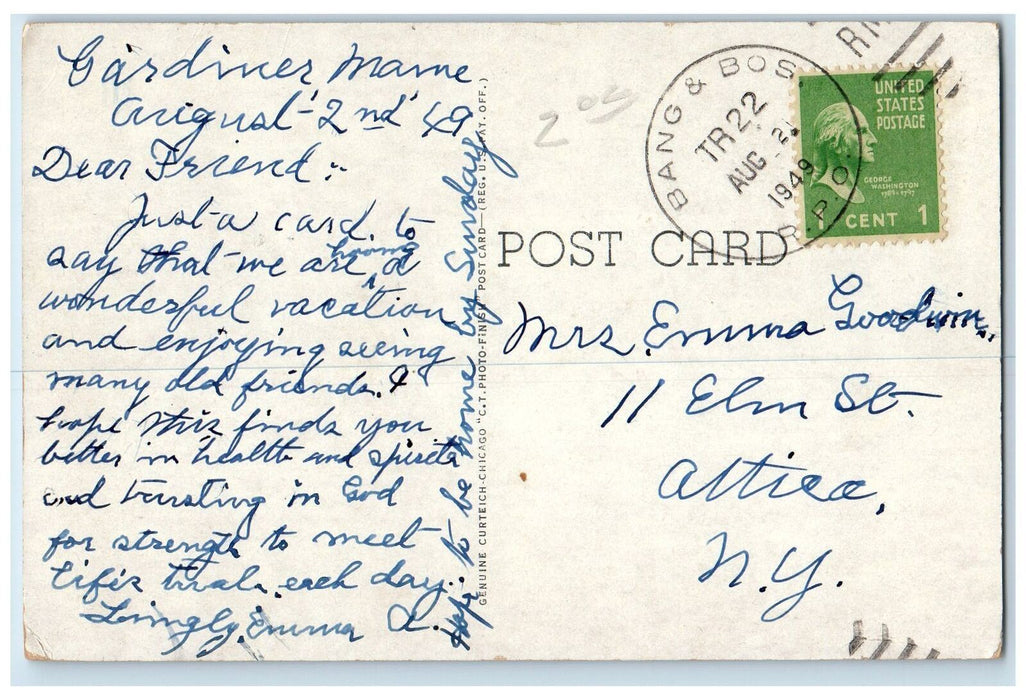 Gardiner Maine
August 2nd '49
Dear Friend :-
Just a card. to
say that we are having a
wonderful vacation
and enjoying seeing
many old friends. I
hope this finds you
better in health and spirits
and trusting in God
for strength to meet
life's trials each day.
Lovingly, Emma A.
Hope to be home by Sunday
GENUINE CURTEICH-CHICAGO "C.T. PHOTO-FINISH" POST CARD—(REG. U.S. PAT. OFF.)
205
BANG & BOS.
TR 22
AUG 2
1949
R.P.O.
RM
UNITED
STATES
POSTAGE
GEORGE
WASHINGTON
1789-1797
1 CENT 1
POST CARD
Mrs. Emma Goodwin.
11 Elm St.
Attica,
N.Y.